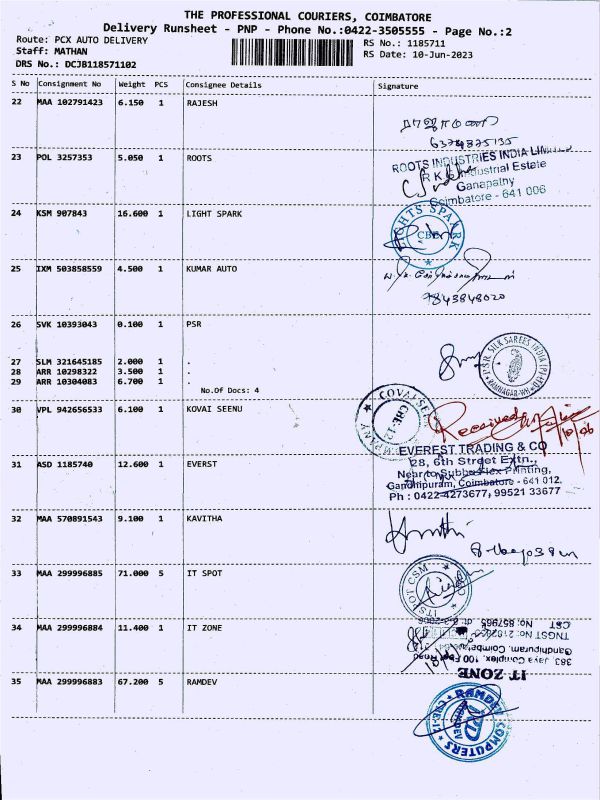 THE PROFESSIONAL COURIERS, COIMBATORE
Delivery Runsheet - PNP - Phone No.:0422-3505555 - Page No.:2
Route: PCX AUTO DELIVERY
Staff: MATHAN
DRS No.: DCJB118571102
RS No.: 1185711
RS Date: 10-Jun-2023
S No Consignment No Weight PCS Consignee Details Signature
22 MAA 102791423 6.150 1 RAJESH
6374875135
23 POL 3257353 5.050 1 ROOTS
ROOTS INDUSTRIES INDIA LIMITED
R K Industrial Estate
Ganapathy
Coimbatore - 641 006
24 KSM 907843 16.600 1 LIGHT SPARK
LIGHTS SPAARK
CBE
25 IXM 503858559 4.500 1 KUMAR AUTO
9843848020
26 SVK 10393043 0.100 1 PSR
PSR SILK SAREES INDIA (P) LTD
27 SLM 321645185 2.000 1 .
28 ARR 10298322 3.500 1 .
29 ARR 10304083 6.700 1 .
No.Of Docs: 4
30 VPL 942656533 6.100 1 KOVAI SEENU
CBE-12
Received
31 ASD 1185740 12.600 1 EVERST
EVEREST TRADING & CO
28, 6th Street Extn.,
Near to Subba Flex Printing,
Gandhipuram, Coimbatore - 641 012.
Ph : 0422-4273677, 99521 33677
32 MAA 570891543 9.100 1 KAVITHA
33 MAA 299996885 71.000 5 IT SPOT
IT SPOT CSM
34 MAA 299996884 11.400 1 IT ZONE
IT ZONE
363, Jaya Complex, 100 Feet Road
Gandhipuram, Coimbatore
35 MAA 299996883 67.200 5 RAMDEV
RAMDEV COMPUTERS
CBE-12